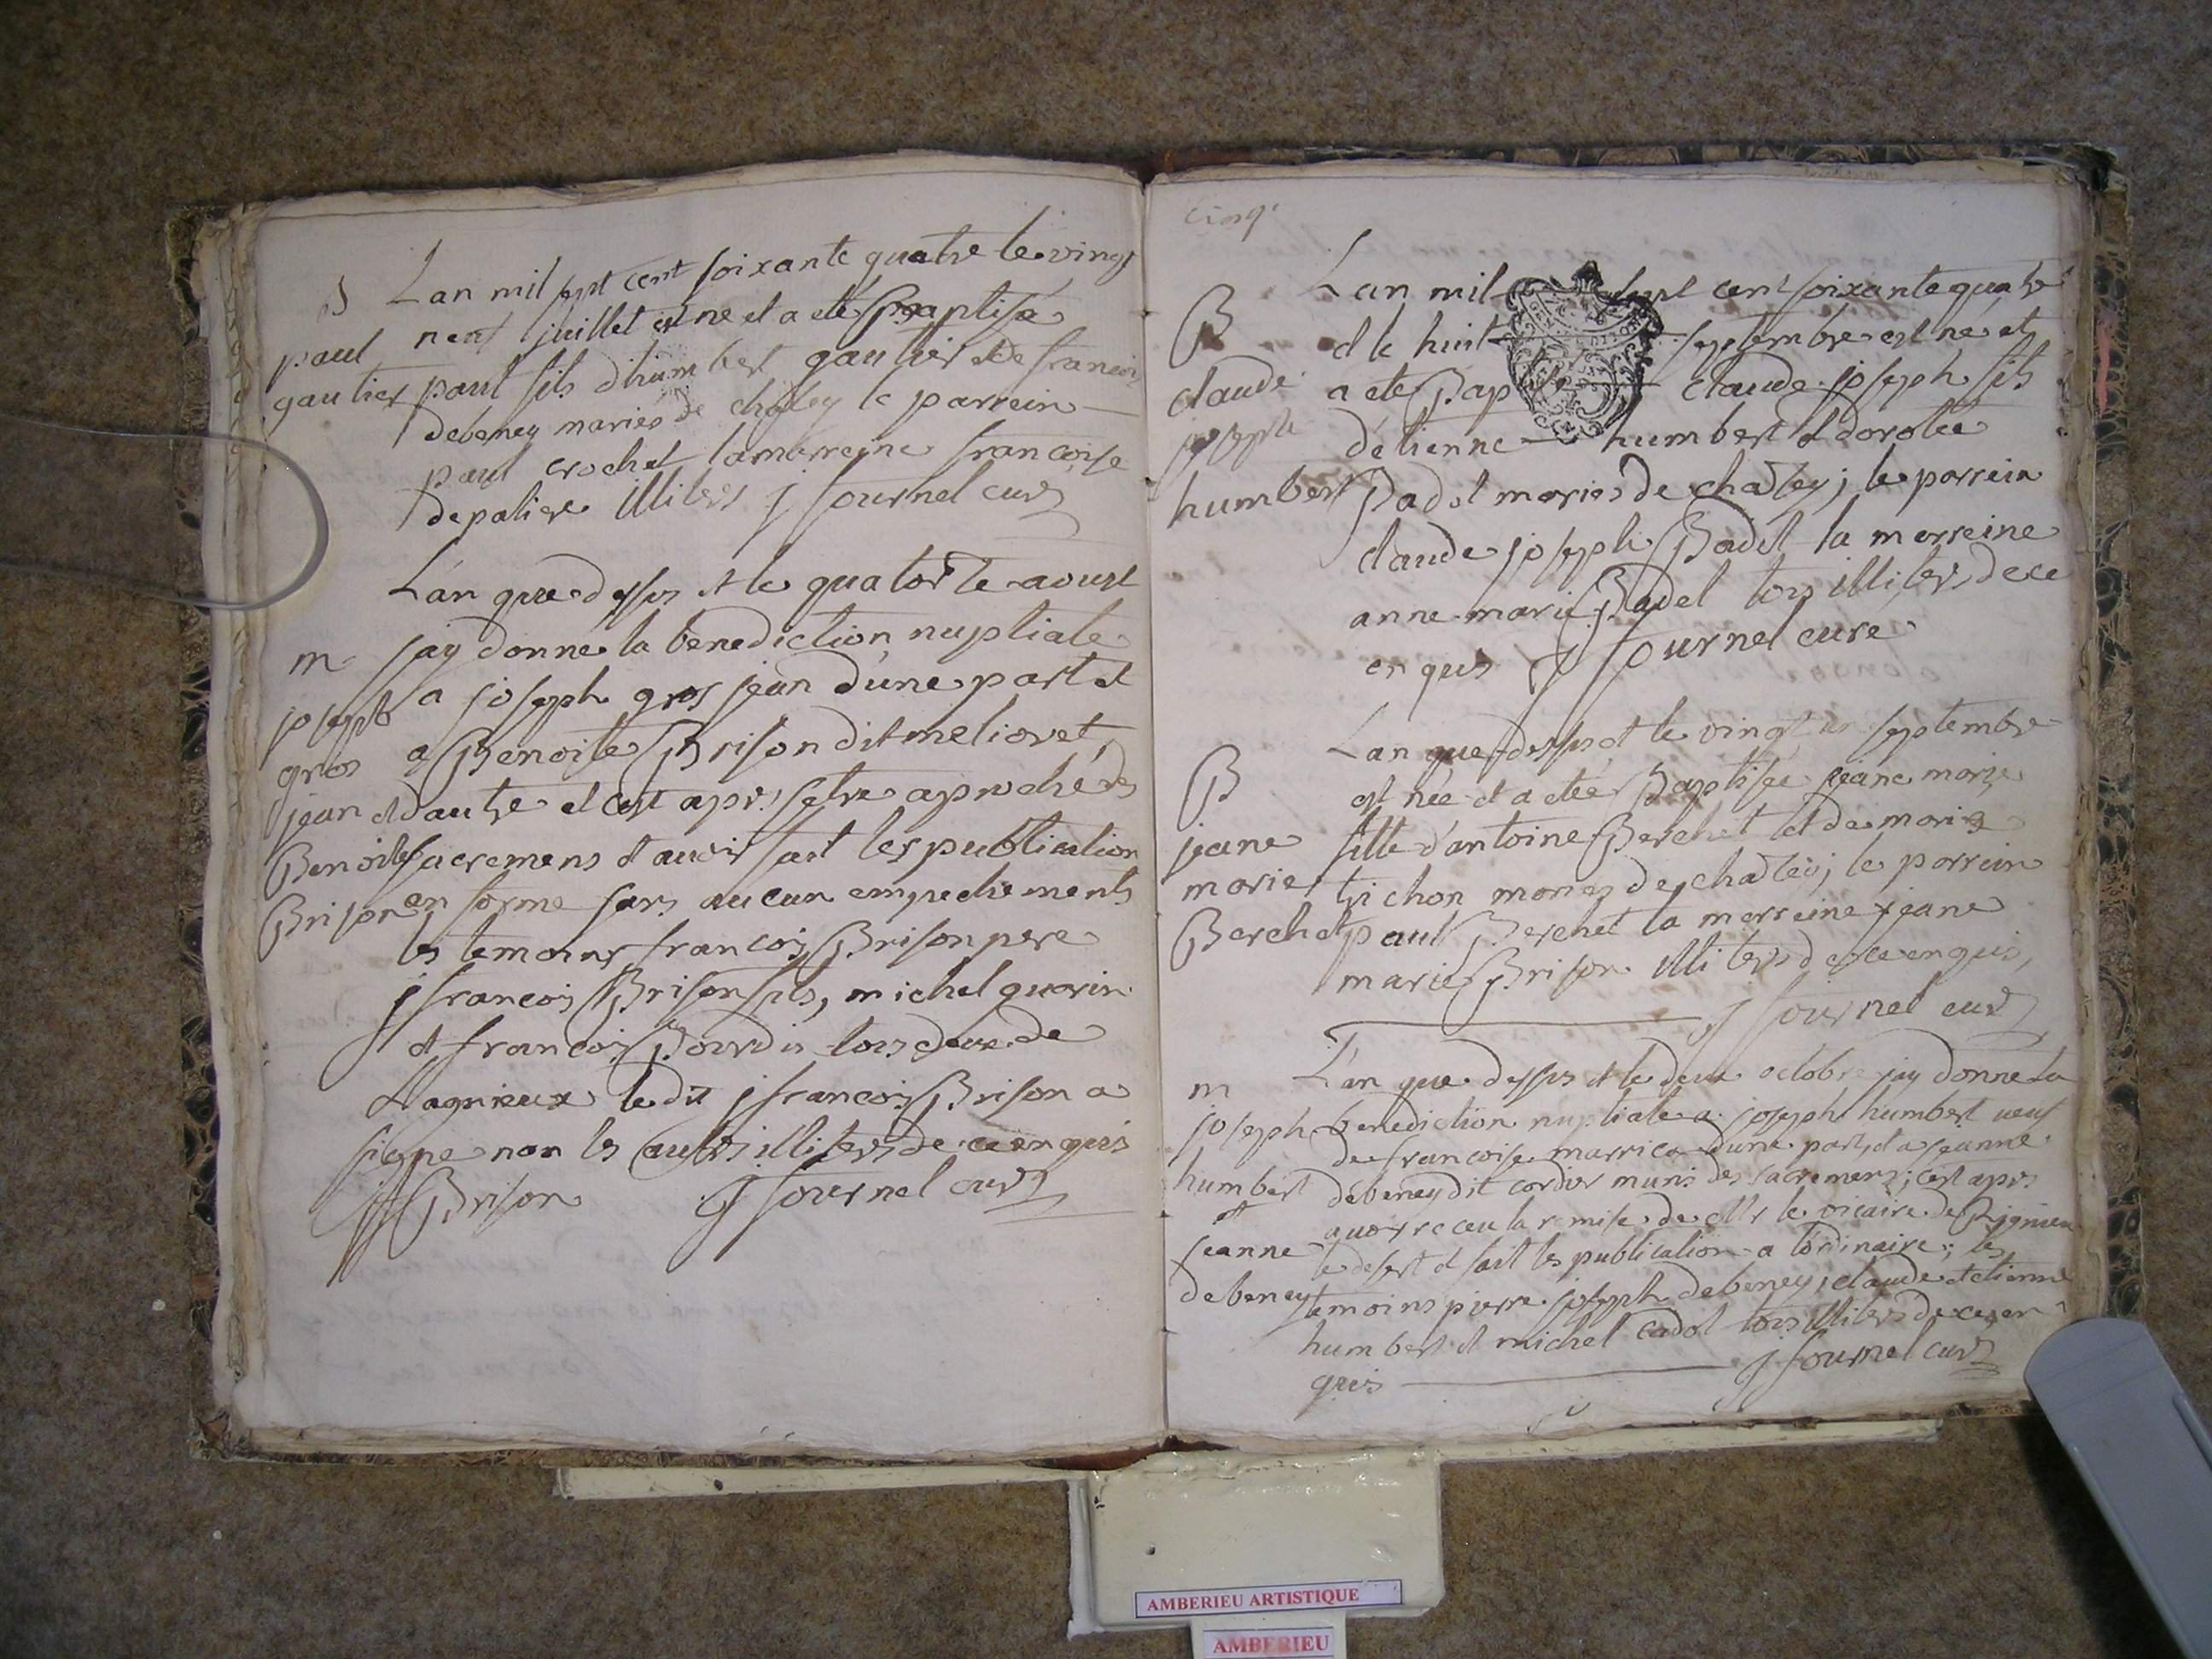 B
paul
gautier
Lan mil sept cent soixante quatre le vingt
neuf juillet est ne et a ete Baptisé
paul fils dhumbert gautier et de francoise
debeney mariés de chatey le parrein
paul crochet la marreine francoise
depaliere illiteres j fournel curé
m
joseph
gros
jean et
Benoite
Brison
Lan que dessus et le quatorze aoust
jay donné la benediction nuptiale
a joseph gros jean d'une part et
a Benoite Brison dit melioret
dautre et cest apres s'etre aproché des
sacremens et avoir fait les publication
en forme sans aucun empechements
les temoins francois Brison pere
j francois Brison fils, michel guerin
et francois Bourdin tous deux de
Lagnieux le dit j francois Brison a
signe non les autres illiteres de ce enquis
jf Brison J fournel curé
cinq.
B
claude
joseph
humbert
Lan mil sept cent soixante quatre
et le huit septembre est né et
a ete Bap claude joseph fils
d'etienne humbert et dorotée
Badel mariés de chatey; le parrein
claude joseph Badel la merreine
anne marie Badel tous illiteres de ce
enquis J fournel curé
B
jeane
marie
Berchet
Lan que dessus et le vingt septembre
est née et a eté Baptisée jeane marie
fille d'antoine Berchet et de marie
trichon mariez de chatey; le parrein
paul Berchet la merreine jeane
marie Brison illiteres de ce enquis,
J fournel curé
m
joseph
humbert
et
jeanne
debeney
L'an que dessus et le deux octobre jay donné la
benediction nuptiale a joseph humbert veuf
de francoise marrica dune part, et a jeanne
debeney dit cordier munis des sacremens; cest apres
avoir receu la remise de Mr le vicaire de Rignieu
le desert et fait les publication a l'ordinaire; les
temoins pierre joseph debeney, claude etienne
humbert et michel cadot tous illiteres de ce en
quis J fournel curé
AMBERIEU ARTISTIQUE
AMBERIEU